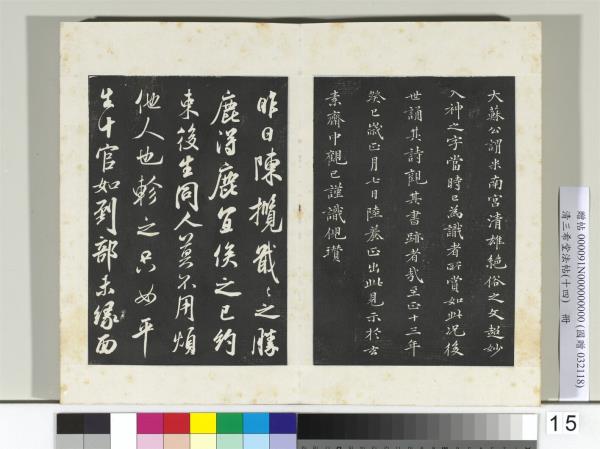 大蘇公謂米南宮清雄絕俗之文超妙
入神之字當時已為識者所賞如此況後
世誦其詩觀其書跡者哉至正十三年
癸巳歲正月七日陸 正出此見示於玄
素齋中觀已謹識倪瓚
昨日陳攬戢〻之勝
鹿得鹿宜俟之已約
束後生同人莫不用煩
他人也軫之只如平
生十官如到部未緣面
贈帖 000091N000000000 (國贈 032118)
清三希堂法帖(十四) 冊
15